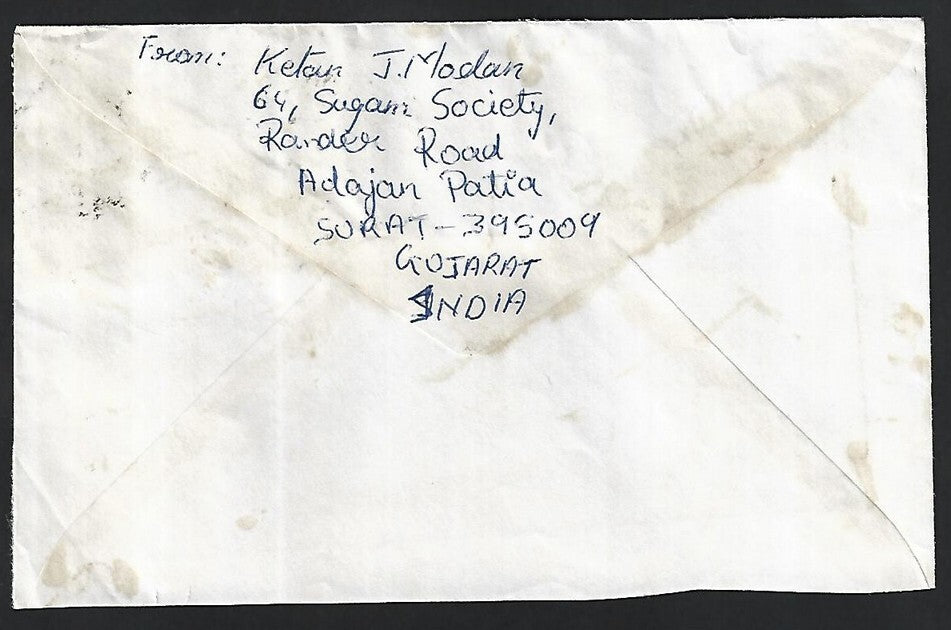 From: Ketan J. Modan
64, Sugam Society,
Rander Road
Adajan Patia
SURAT - 395009
GUJARAT
INDIA